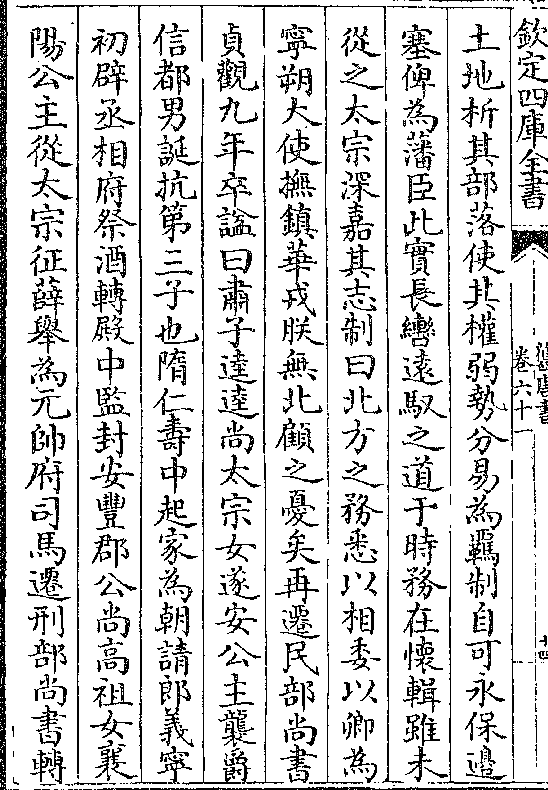 欽定四庫全書
舊唐書
卷六十一
十四
土地析其部落使其權弱勢分易為羈制自可永保邊
塞俾為藩臣此實長轡遠馭之道于時務在懷輯雖未
從之太宗深嘉其志制曰北方之務悉以相委以卿為
寧朔大使撫鎮華戎朕無北顧之憂矣再遷民部尚書
貞觀九年卒諡曰肅子逹逹尚太宗女遂安公主襲爵
信都男誕抗第三子也隋仁壽中起家為朝請郎義寧
初辟丞相府祭酒轉殿中監封安豐郡公尚高祖女襄
陽公主從太宗征薛舉為元帥府司馬遷刑部尚書轉